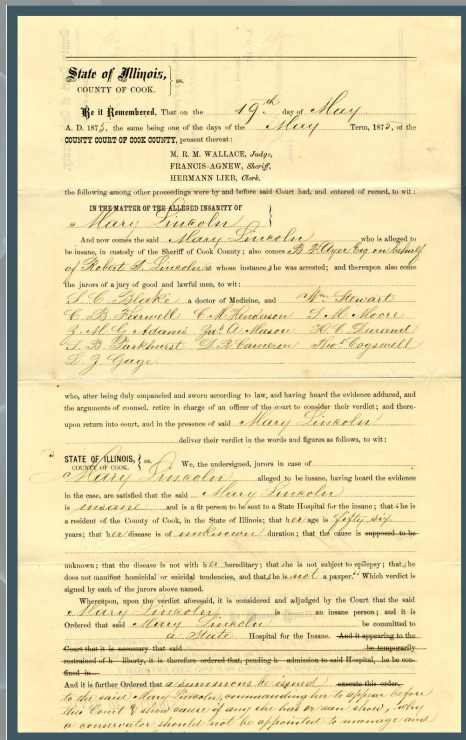 State of Illinois, } ss.
COUNTY OF COOK.
Be it Remembered, That on the 19th day of May
A. D. 1875, the same being one of the days of the May Term, 1875, of the
COUNTY COURT OF COOK COUNTY, present thereat:
M. R. M. WALLACE, Judge,
FRANCIS AGNEW, Sheriff,
HERMANN LIEB, Clerk.
the following among other proceedings were by and before said Court had, and entered of record, to wit:
IN THE MATTER OF THE ALLEGED INSANITY OF
Mary Lincoln }
And now comes the said Mary Lincoln who is alleged to
be insane, in custody of the Sheriff of Cook County; also comes B. F. Ayer Esq on behalf
of Robert T. Lincoln at whose instance she was arrested; and thereupon also come
the jurors of a jury of good and lawful men, to wit:
S. C. Blake a doctor of Medicine, and Wm. Stewart
C. B. Farwell C. M. Henderson S. M. Moore
L. B. Parkhurst D. R. Cameron Thos. Cogswell
L. J. Gage
who, after being duly empanneled and sworn according to law, and having heard the evidence adduced, and
the arguments of counsel, retire in charge of an officer of the court to consider their verdict; and there-
upon return into court, and in the presence of said Mary Lincoln
deliver their verdict in the words and figures as follows, to wit:
STATE OF ILLINOIS, } ss.
COUNTY OF COOK. We, the undersigned, jurors in case of
Mary Lincoln alleged to be insane, having heard the evidence
in the case, are satisfied that the said Mary Lincoln
is insane and is a fit person to be sent to a State Hospital for the insane; that she is
a resident of the County of Cook, in the State of Illinois; that her age is fifty six
years; that her disease is of unknown duration; that the cause is supposed to be
unknown; that the disease is not with her hereditary; that she is not subject to epilepsy; that she
does not manifest homicidal or suicidal tendencies, and that she is not a pauper." Which verdict is
signed by each of the jurors above named.
Whereupon, upon the verdict aforesaid, it is considered and adjudged by the Court that the said
Mary Lincoln is an insane person; and it is
Ordered that said Mary Lincoln be committed to
a State Hospital for the Insane. And it appearing to the
Court that it is necessary that said be temporarily
restrained of h liberty, it is therefore ordered that, pending h admission to said Hospital, he be con-
fined in
And it is further Ordered that a summons be issued execute this order,
to the said Mary Lincoln, commanding her to appear before
this Court & show cause if any she has or can show, why
a conservator should not be appointed to manage and